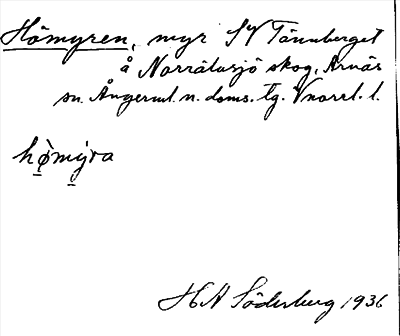 Hömyren, myr SV Tännberget
å Norrälasjö skog, Arnäs
sn. Ångerml. n. doms. tg. Vnorrl. l.
hø̀mýra
H A Söderberg 1936